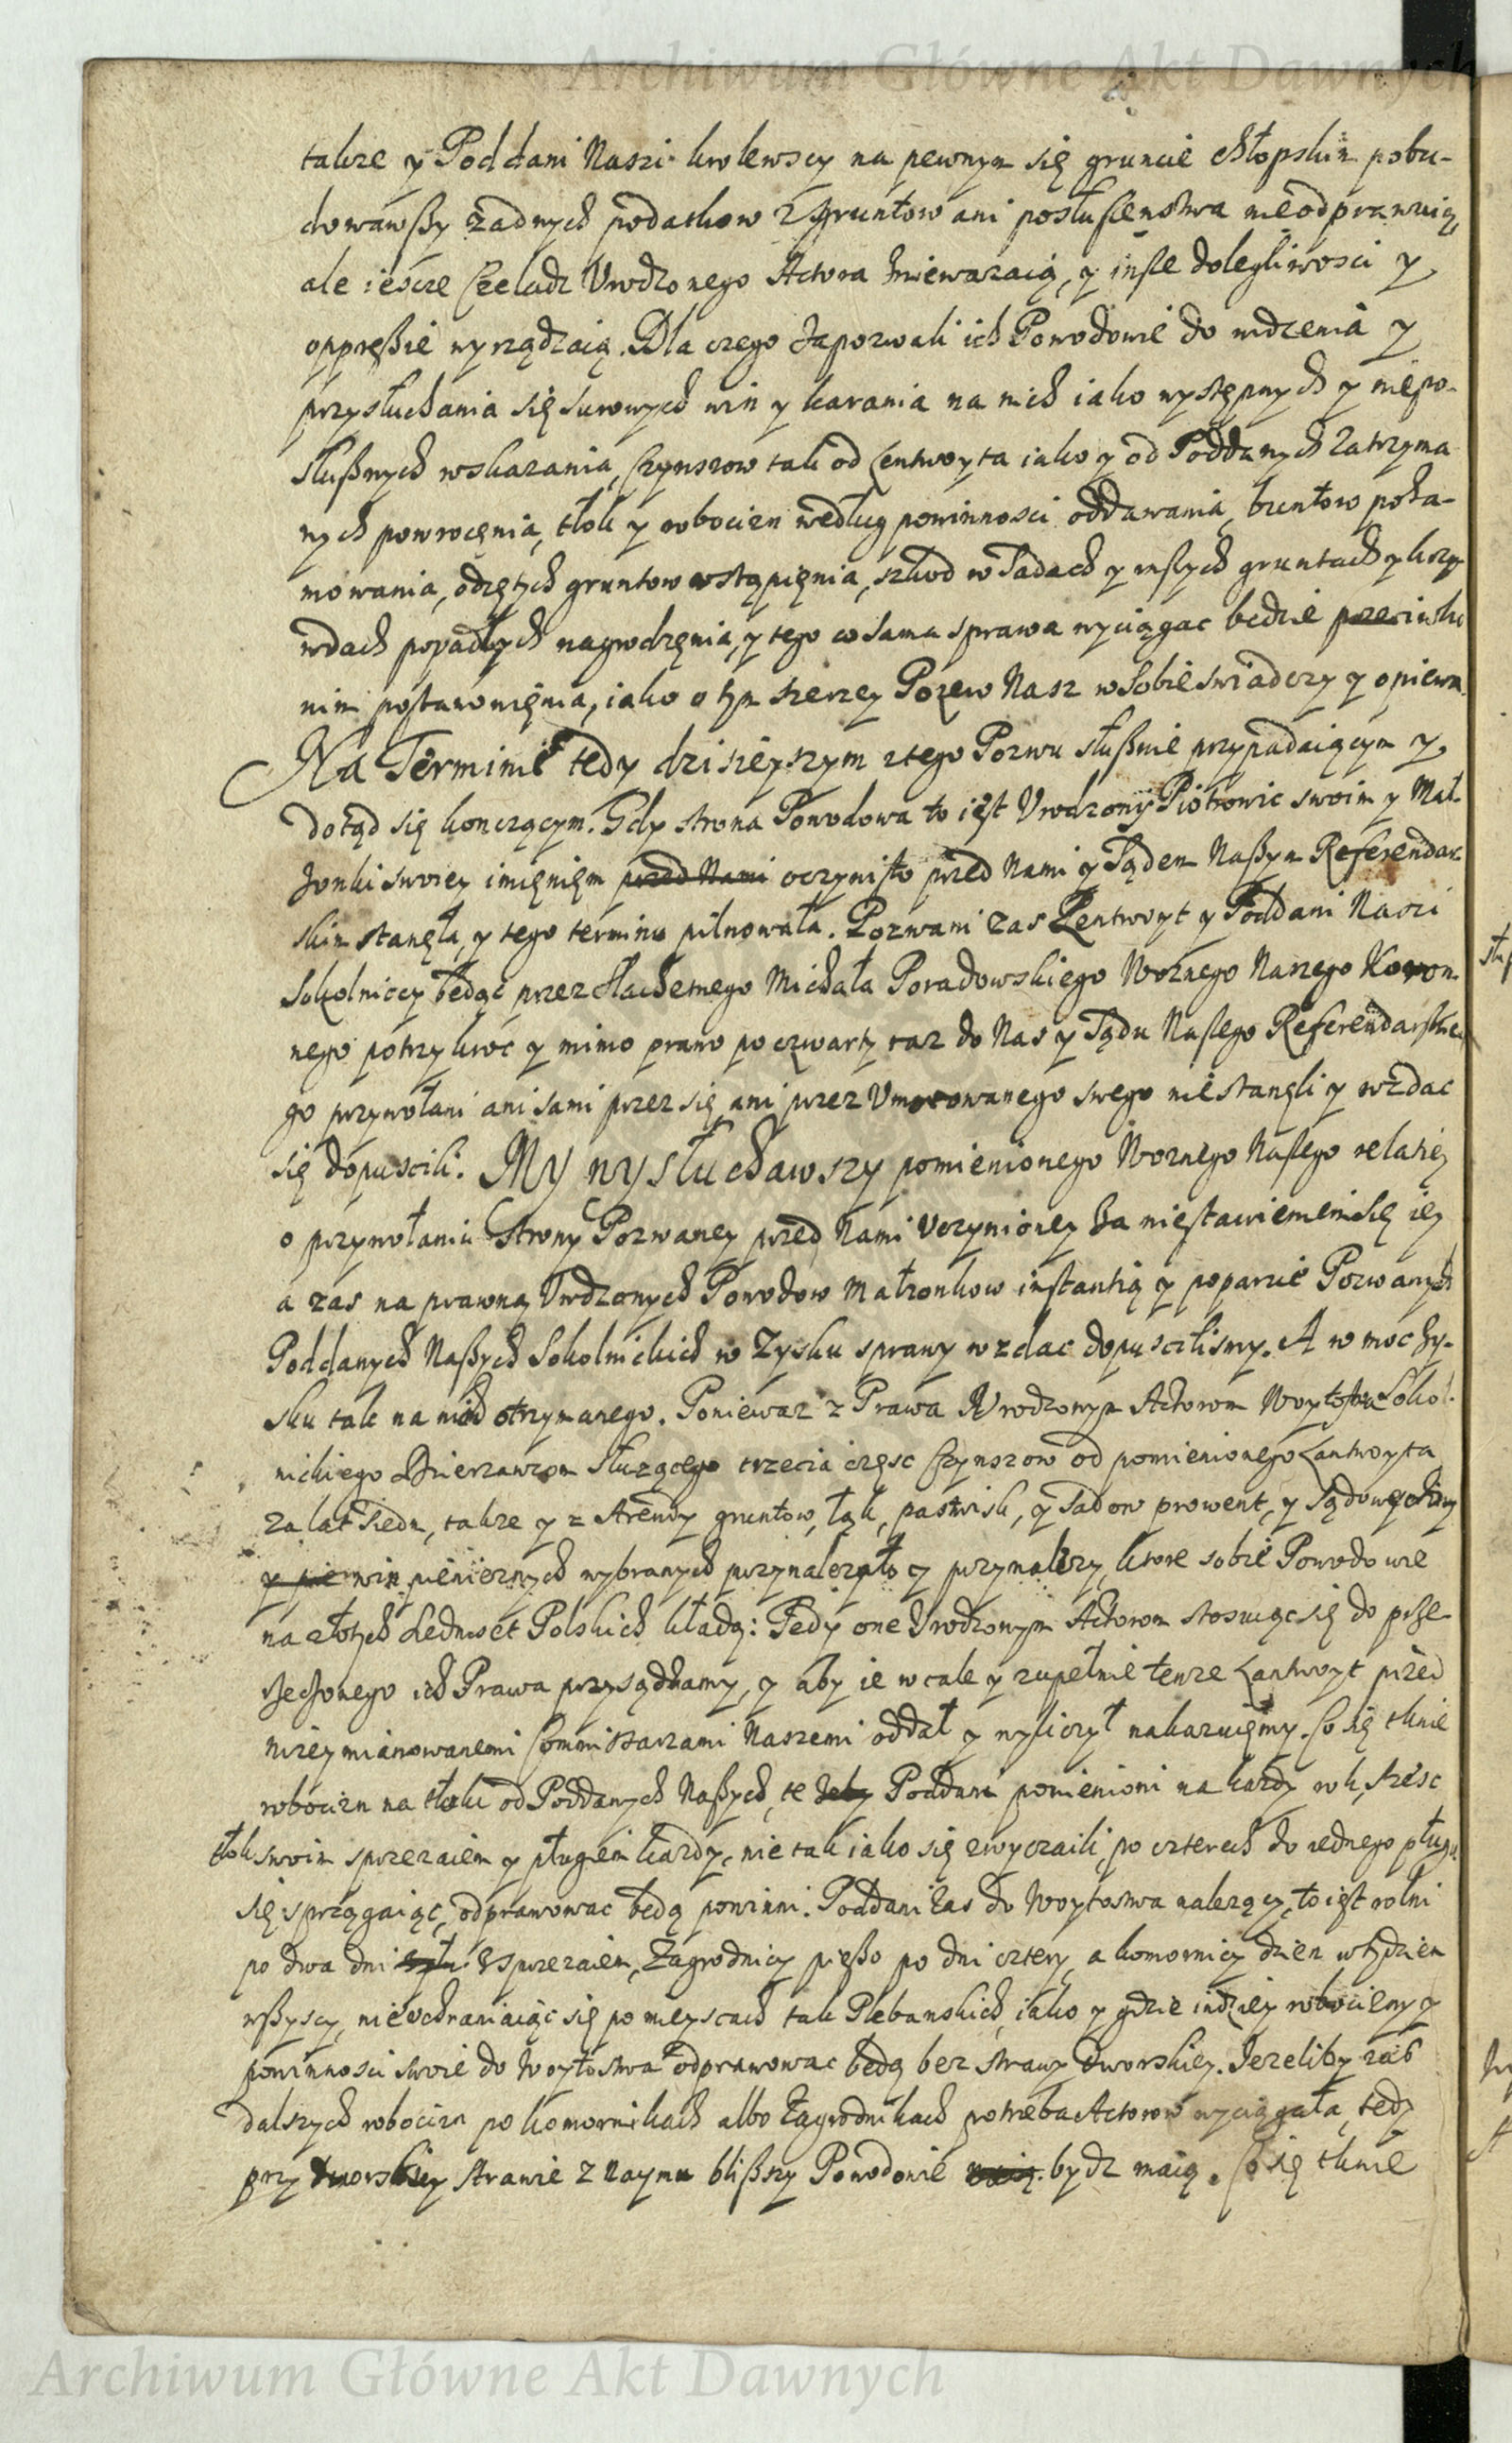 Archiwum Główne Akt Dawnych
takze y Poddani Naszi krolewscy na pewnym się gruncie chłopskim pobu-
dowawszy zadnych podatkow z gruntow ani posłuszenstwa nieodprawuią,
ale iescze Czeladz Urodzonego Actora zniewazaią, y insze dolegliwosci y
oppressie wyrządzaią. Dla czego zapozwali ich Powodowie do widzenia y
przysłuchania się surowych win y karania na nich iako występnych y niepo-
słusznych wskazania, Czynszow tak od Lentwoyta iako y od Poddanych zatrzyma
nych powrocenia, tłok y robocizn według powinnosci oddawania, buntow poha-
mowania, odiętych gruntow ustąpienia, szkod w Sadach y inszych gruntach y krzy-
wdach popadłych nagrodzenia, y tego co sama sprawa wyciągac bedzie przeciwko
nim postanowienia, iako o tym szerzey Pozew Nasz w sobie swiadczy y opiewa.
Na Terminie tedy dzisieyszym z tego Pozwu słusznie przypadaiącym y
dotąd się konczącym. Gdy strona Powodowa to iest Urodzony Piotrowic swoim y Mał-
zonki swoiey imieniem przed Nami oczywisto przed Nami y Sądem Naszym Referendar-
skim stanęła, y tego terminu pilnowała. Pozwani zas Lentwoyt y Poddani Naszi
Sokolniccy bedąc przez szlachetnego Michała Poradowskiego Woznego Naszego Koron-
nego potrzykroc y mimo prawo po czwarty raz do Nas y Sądu Naszego Referendarskie-
go przywołani ani sami przez się, ani przez Umocowanego swego nie stanęli y wzdac
się dopuscili. My wysłuchawszy pomienionego Woznego Naszego relatiey
o przywołaniu Strony Pozwaney przed Nami uczynioney za niestawieniem się iey
a zas na prawną Urodzonych Powodow Małzonkow instantią y poparcie Pozwanych
Poddanych Naszych Sokolnickich w Zysku sprawy wzdac dopuscilismy. A w moc Zy-
sku tak na nich otrzymanego. Poniewaz z Prawa Urodzonym Actorom Woytostwa Sokol-
nickiego Dzierzawcom słuzącego trzecia częsc Czynszow od pomienionego Lantwoyta
za lat siedm, takze y z Arendy gruntow, łąk, pastwisk, y Sadow prowent, y Sądowych
y pie win pieniężnych wybranych przynalezało y przynalezy, ktore sobie Powodowie
na złotych siedmset Polskich kładą: Tedy one Urodzonym Actorom stosuiąc się do prze
rzeczonego ich Prawa przysądzamy, y aby ie wcale y zupełnie tenze Lantwoyt przed
nizey mianowanemi Commissarzami Naszemi oddał y wyliczył nakazuiemy. Co się tknie
robocizn na tłoki od Poddanych Naszych, te Poddani pomienioni na kazdy rok, szesc
tłok swoim sprzezaiem y pługiem kazdy, nie tak iako się zwyczaili, po czterech do iednego pługa
się sprzągaiąc, odprawowac będą powinni. Poddani zas do Woytostwa nalezący, to iest rolni
po dwa dni sprzezaiem, Zagrodnicy pieszo po dni cztery, a komornicy dzien w tydzien
wszyscy, nie ochraniaiąc się po mieyscach tak Plebanskich, iako y gdzie indziey robocizny y
powinnosci swoie do Woytostwa odprawowac będą bez strawy dworskiey. Jezeliby zas
dalszych robocizn po komornikach albo Zagrodnikach potrzeba Actorow wyciągała, tedy
przy dworskiey strawie z Naymu blizszy Powodowie bydz maią. Co się tknie
Archiwum Główne Akt Dawnych